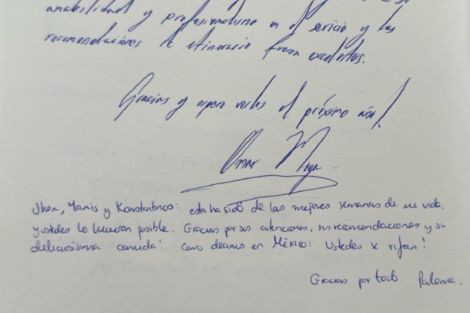 amabilidad y profesionalismo en el servicio y las
recomendaciones de itinerario fueron excelentes.
Gracias y espero verlos el próximo año!
Omar
Jhon, Yannis y Konstantinos: esta ha sido de las mejores semanas de mi vida,
y ustedes lo hicieron posible. Gracias por sus atenciones, sus recomendaciones y su
deliciosísima comida! Como decimos en México: Ustedes se rifan!
Gracias por todo. Paloma.